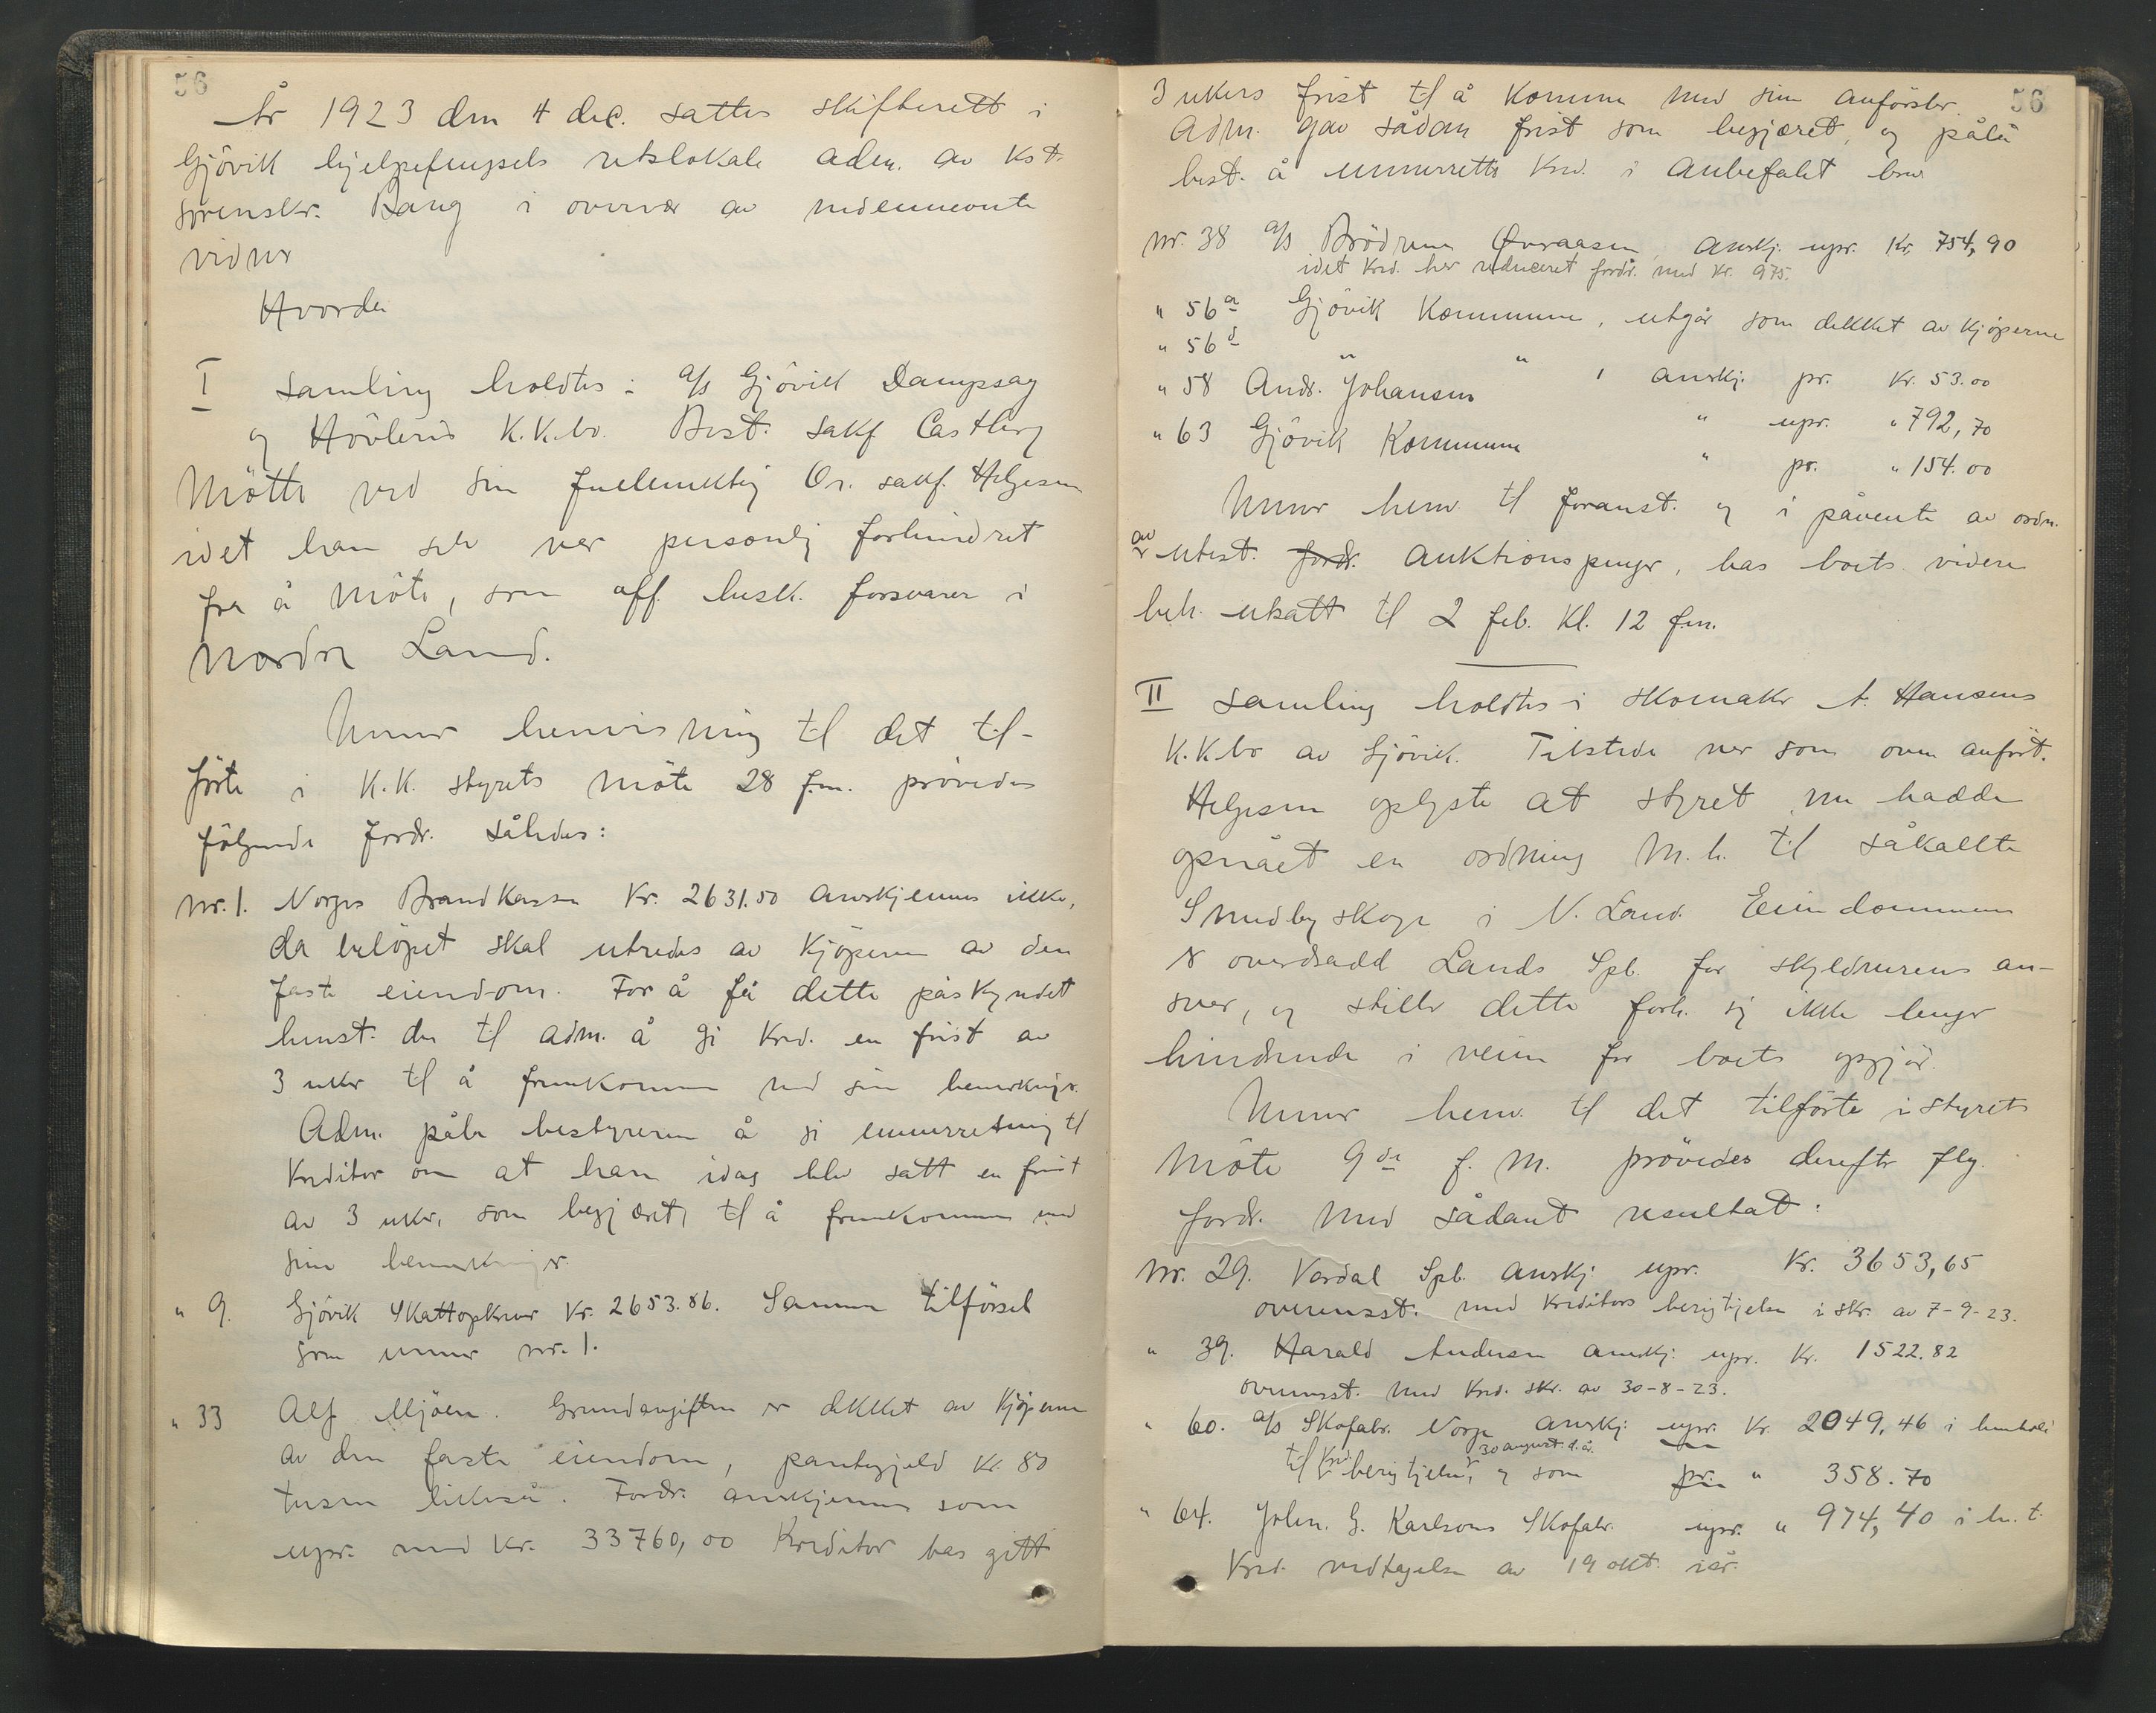 56
År 1923 den 4 dec. sattes skifterett i
Gjövik hjelpefengsels retslokale adm. av kst.
sorenskr. Bang i overvær av nedennevnte
vidner
Hvorda
I Samling holdtes i a/s Gjövik Dampsag
og Hövleris K.K.bo. Best. sakf. Castberg
Mötte ved sin fuldmektig Or. sakf. Helgesen
idet han selv var personlig forhindret
fra å möte, som off. besk. forsvarer i
Nordre Land.
Unner henvisning til det til-
förte i K.K. styrets möte 28 f.m. prövedes
fölgende fordr. således:
Nr. 1. Norges Brandkasse Kr. 2631.50 anerkjennes ikke,
da belöpet skal utredes av kjöperen av den
faste eiendom. For å få dette påskyndet
henst. der til adm. å gi kred. en frist av
3 uker til å fremkomme med sin bemerkninger.
Adm. påla bestyreren å gi unnerretning til
Kreditor om at han idag blev satt en frist
av 3 uker, som begjæret, til å fremkomme med
sine bemerkninger.
" 9. Gjövik Skattopkrever Kr. 2653.86. Samme tilförsel
som unner nr. 1.
" 33 Alf Mjöen. Grundavgiften er dekket av kjöperne
av den faste eiendom, pantegjeld kr. 80
tusen likeså. Fordr. anerkjennes som
upr. med kr. 33760,00 Kreditor bas gitt
56
3 ukers frist til å komme med sine anförsler.
Adm. gav sådan frist som begjæret, og påla
best. å unnerrette kred. i anbefalet brev
Nr. 38 a/s Brödrene Øveraasen, anerkj. upr. Kr. 754,90
idet kred. her reduceret fordr. med kr. 975.
" 56 a Gjövik Kommune, utgår som dekket av kjöperne
" 56 d " " , anerkj. pr. Kr. 53.00
" 58 Andr. Johansen " upr. " 792,70
" 63 Gjövik Kommune " pr. " 154.00
Unner henv. til foranst. og i påvente av ordn.
av utest. fordr. auktionspenger, bas boets videre
beh. utsatt til 2 feb. Kl. 12 f.m.
II Samling holdtes i skomaker A. Hansens
K.K.bo av Gjövik. Tilstede var som oven anfört.
Helgesen oplyste at styret nu hadde
opnået en ordning m.h. til såkallte
Smedbyskoge i N. Land. Eiendommen
er overdradd Lands Spb. for skyldnerens an-
svar, og stiller dette forh. sig ikke lenger
hindrende i veien for boets opgjör.
Unner henv. til det tilförte i styrets
Möte 9de f. m. prövedes derefter flg.
fordr. med sådant resultat:
Nr. 29. Vardal Spb. anerkj. upr. Kr. 3653,65
overensst. med kreditors berigtigelse i skr. av 7-9-23.
" 39. Harald Andersen anerkj. upr. Kr. 1522.82
overensst. med kred. skr. av 30-8-23.
" 60. a/s Skofabr. Norge anerkj. upr. Kr. 2049,46 i henhold
til kred. berigtigelse, 30 august d.å. og som pr. " 358.70
" 64. John. G. Karlsons Skofabr. upr. " 974,40 i h. t.
Kred. vedtagelse av 19 okt. iår.